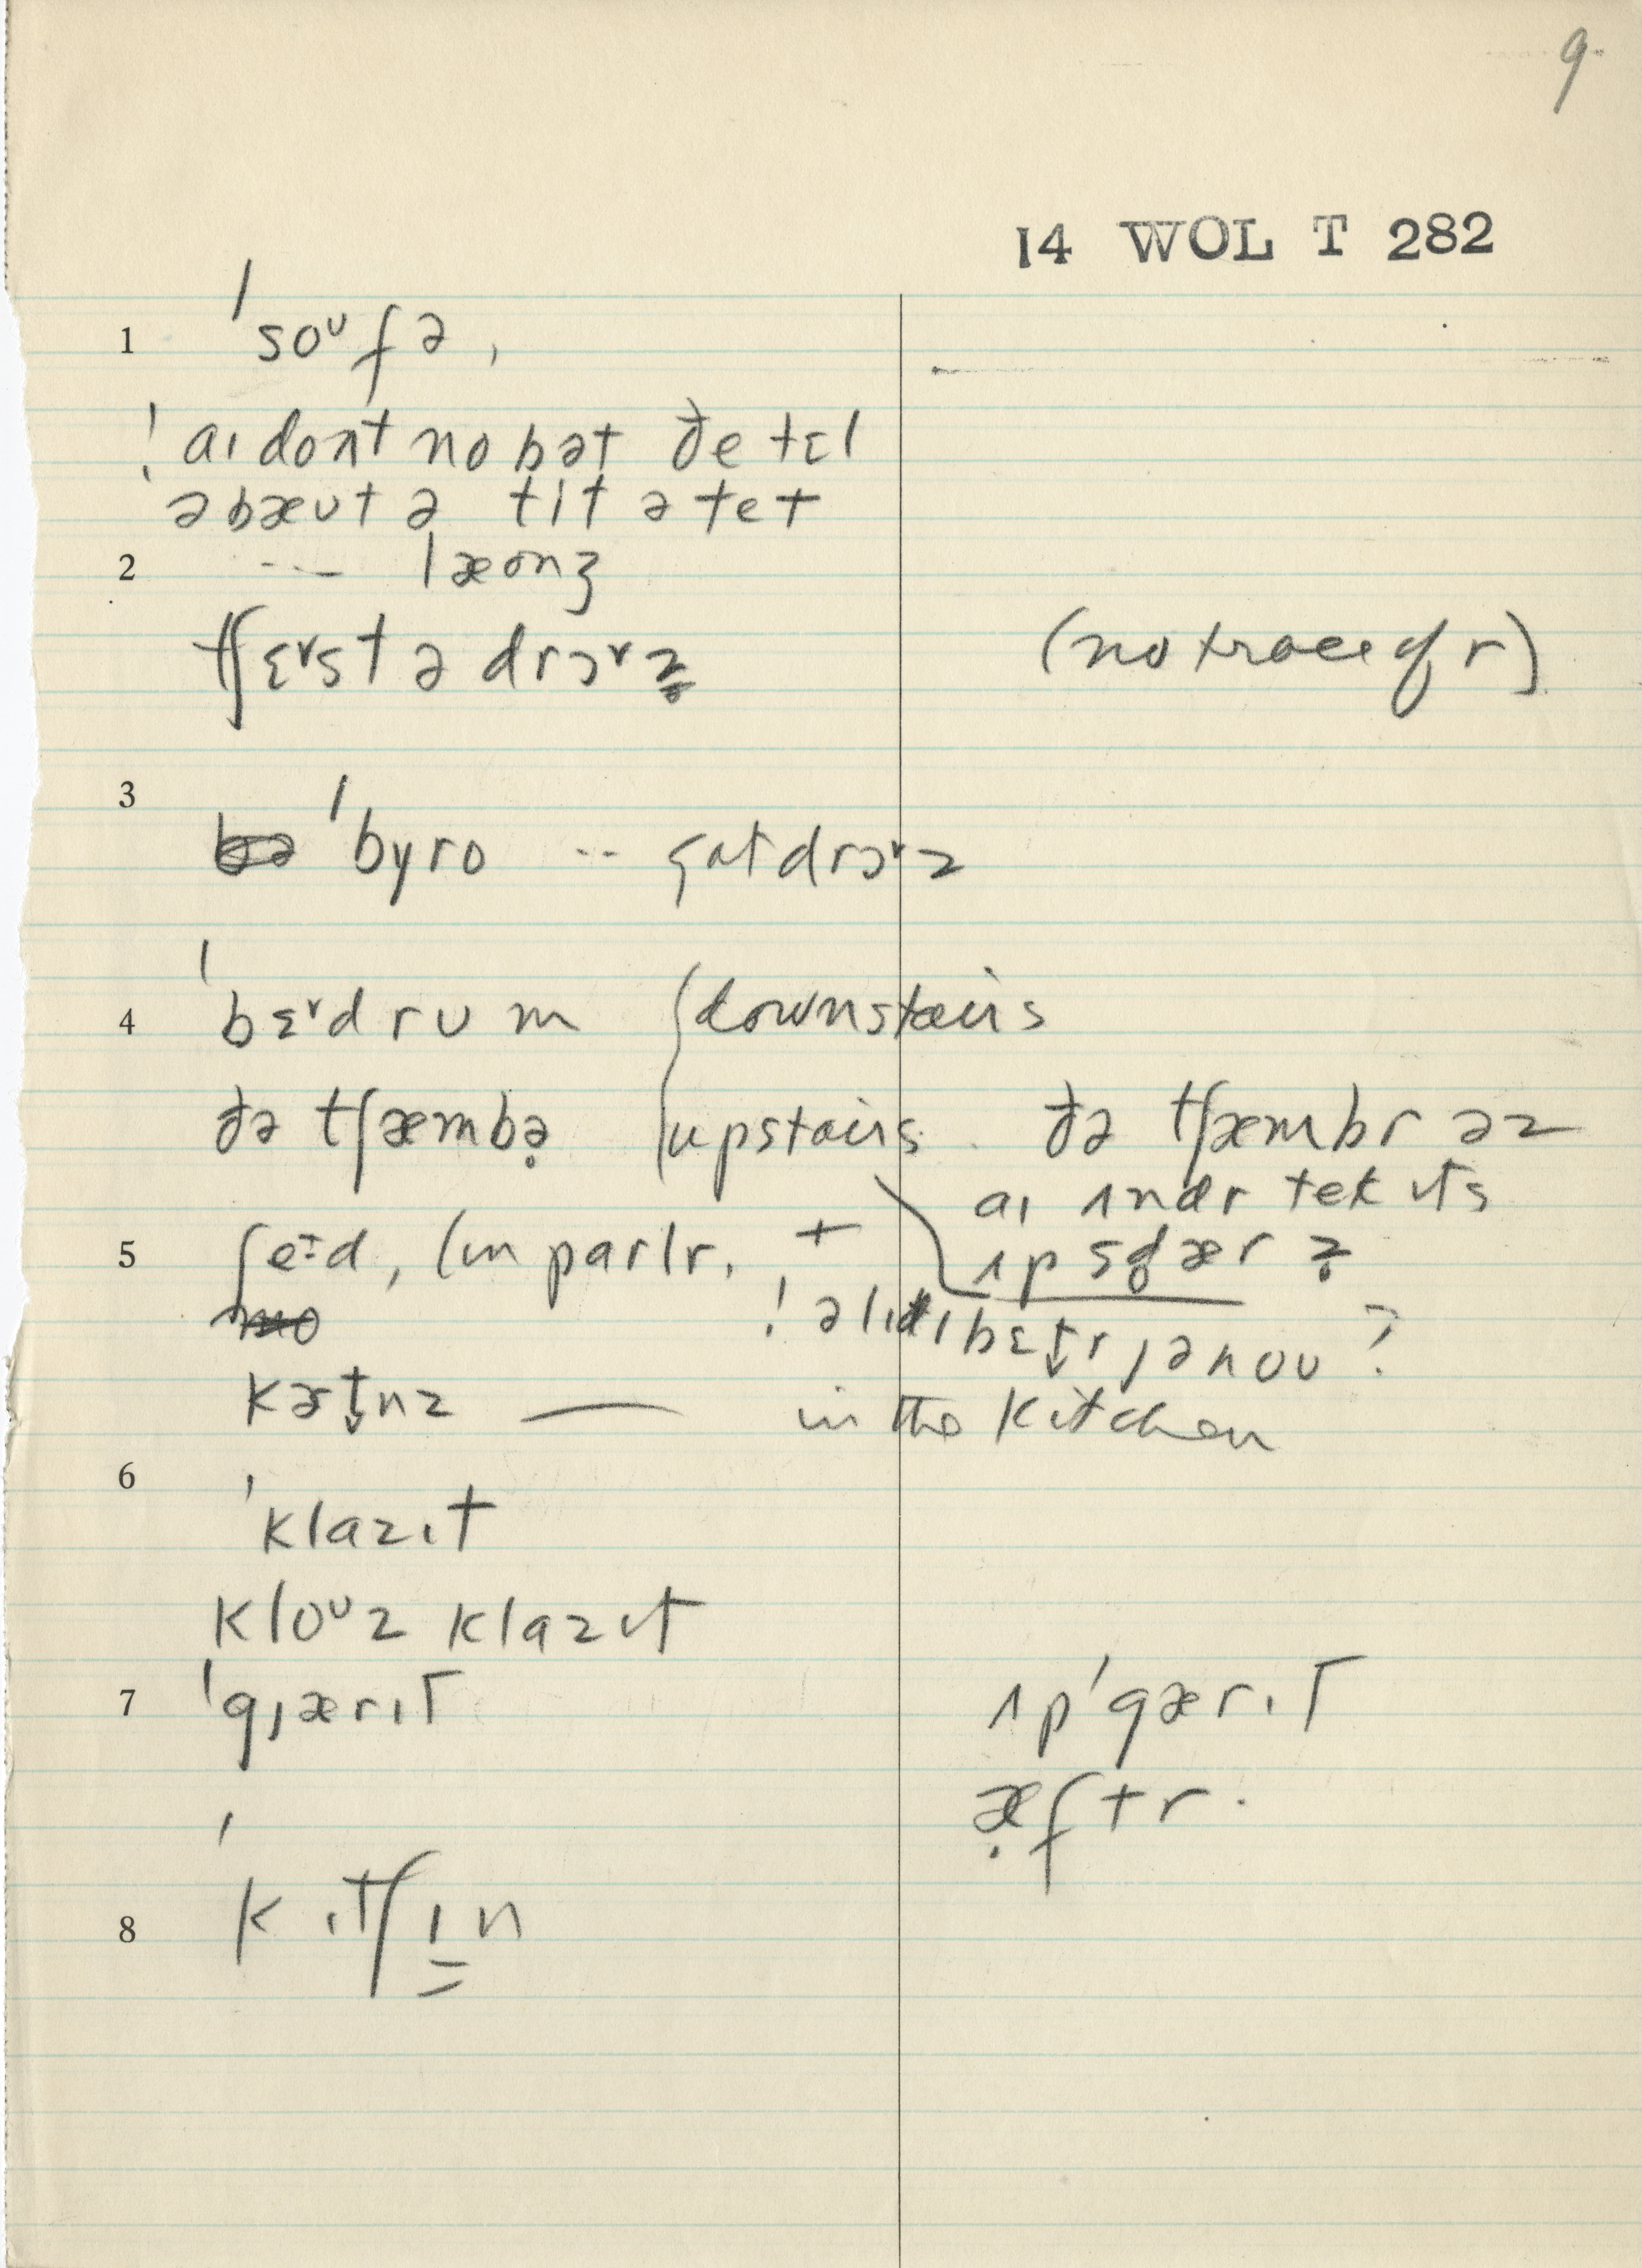 9.
14 WOL T 282
1 ˈsoᵘfə,
! aɪ dont no bət ðe tɛl
əbæut ə tit ə tet
2 --- læonʒ
tʃɛᵛst ə drɔᵛz (no trace of r)
3 ˈbyro -- drɔᵛz
4 ˈbɛᵛdrum {downstairs
ðə tʃæmbə̣ {upstairs. ðə tʃæmbr əz
aɪ ʌndr tek ɪts
5 ʃe:d, (in parlr. + ʌp sd̥ær z̥
!
kətnz — in the kitchen
6 ˈklazɪt
kloᵘz klazɪt
7 ˈgjærɪt ʌpˈgærɪt
æ̣ftr.
8 ˈkɪtʃɪn